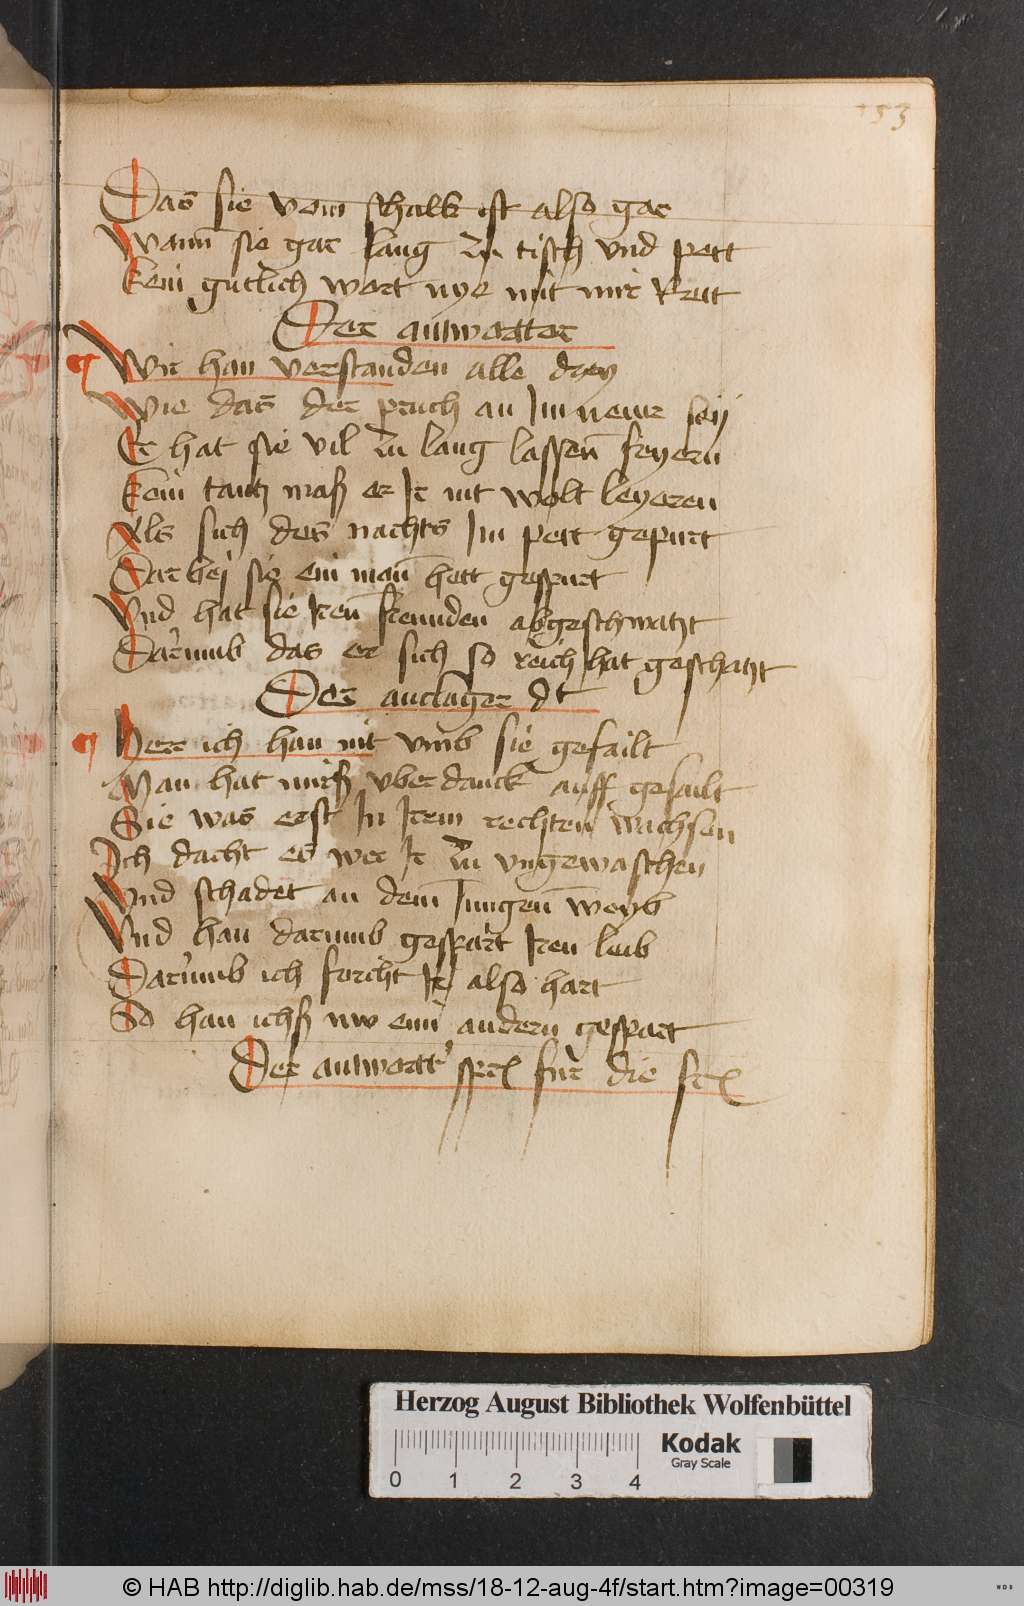 153
Das sie vom schalk ist also gar
Wann sie gar lang zu tisch vnd pett
Kein gutlich wort nye mit mir Rett
Der antworter
Wir han verstanden alle drey
Wie das der pruch an Im newr seÿ
Er hat sie vil zu lang lassen feyern
Kein tantz maß er Ir nit wolt leyeren
Als sich des nachts Im pett gepurt
Darbeÿ sie ein man hett gespurt
Vnd hat sie Iren freunden abgeschwatzt
Darumb das er sich so reich hat geschatzt
Der anclager dt
Herr ich han nit vmb sie gefailt
Man hat mirß vber danck auff gesailt
Sie was erst In Irem rechten wachsen
Ich dacht es wer Ir zu vngewaschen
Vnd schadet an dem Iungen weyb
Vnd han darumb gespart Iren leib
Darumb ich forcht Ir also hart
So han ichß nw eim andern gespart
Der antwortt' spr fur die fr
Herzog August Bibliothek Wolfenbüttel
Kodak
Gray Scale
0 1 2 3 4
© HAB http://diglib.hab.de/mss/18-12-aug-4f/start.htm?image=00319